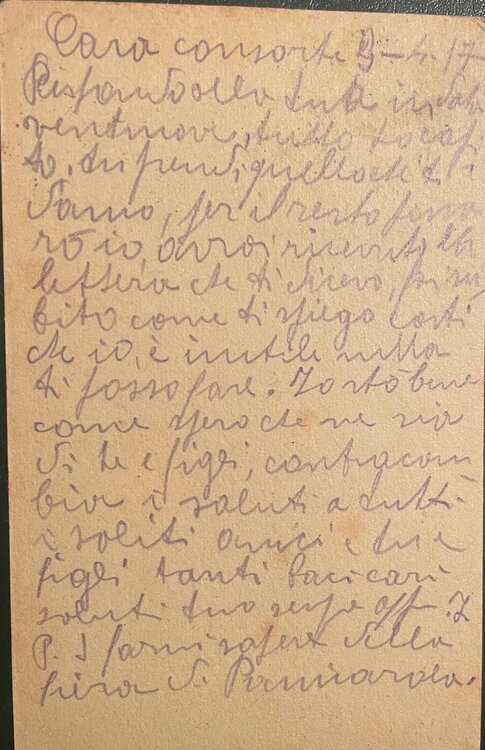 Cara consorte 3-4-17
Rispondo alla tua in data
ventinove, tutto ho capi
to, tu prendi quello che ti
danno, per il resto pense
rò io, avrai ricevuto
lettera che ti dicevo, fai su
bito come ti spiego costi
che io, è inutile nulla
ti posso fare. Io sto bene
come spero che ne sia
di te e figli, contracam
bia i saluti a tutti
i soliti amici e tu e
figli tanti baci cari
saluti tuo sempre aff.
P. S fammi sapere della
fiera di